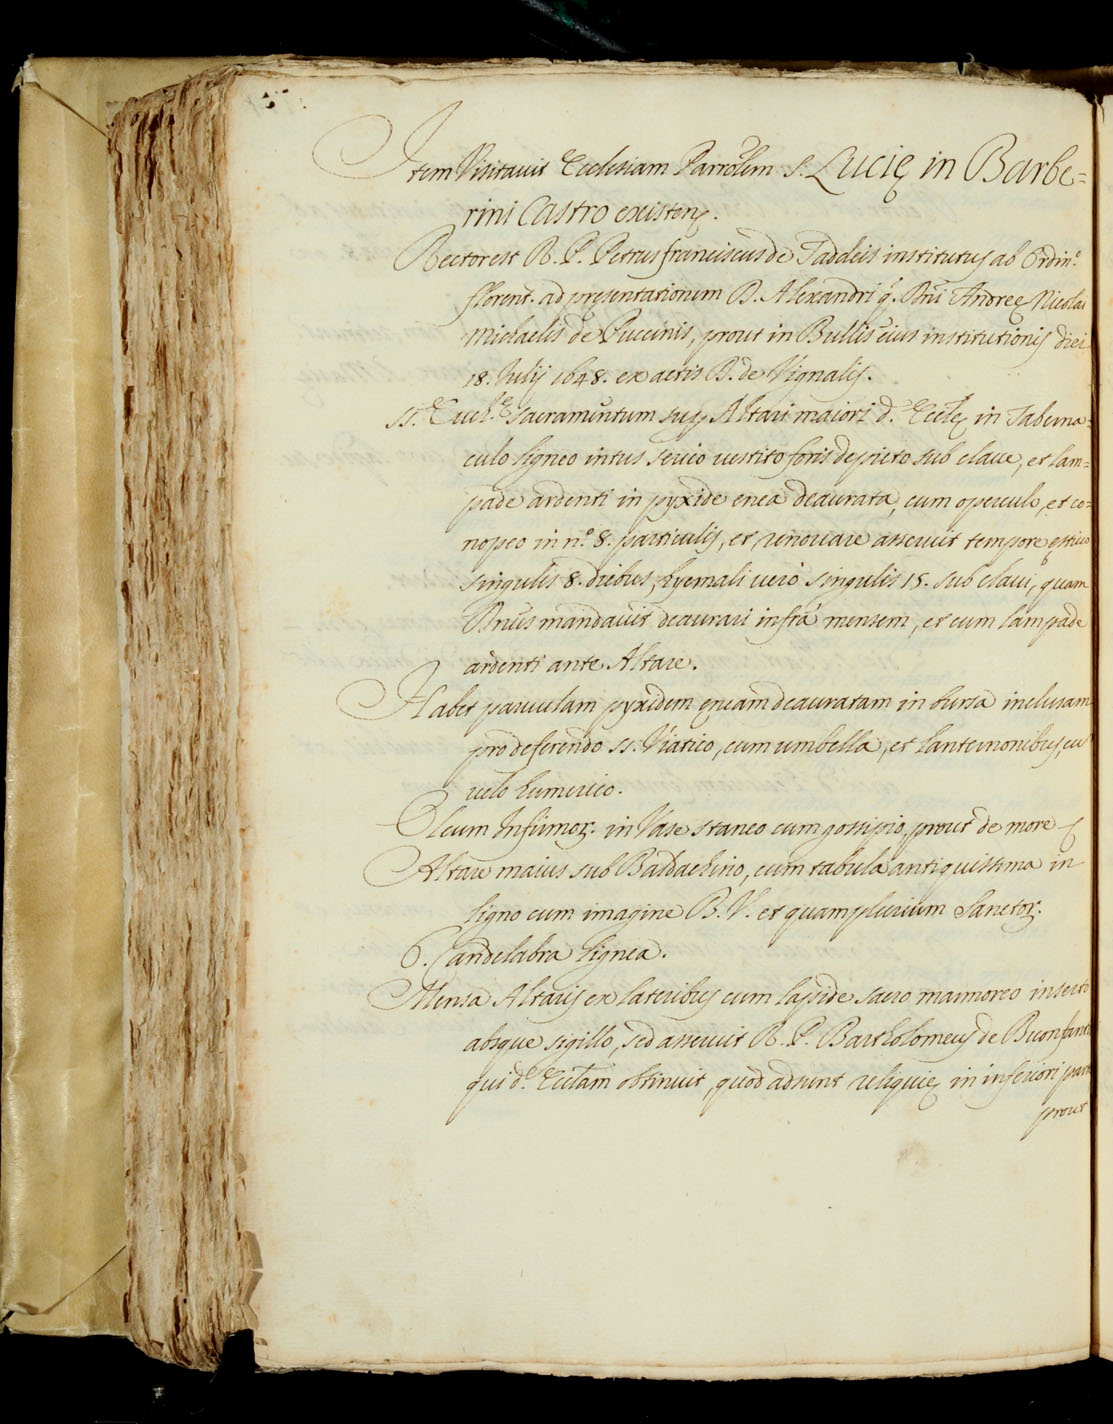 Item Visitavit Ecclesiam Parrõlem S. Lucię in Barbe=
rini Castro existenš.
Rector est R. P. Petrus franciscus de Taddeis institutus ab Ordin.º
florent. ad presentationem D. Alexandri q. Dñi Andreę Nicolai
Michaelis de Puccinis, prout in Bullis eius institutionis diei
18. Julij 1648. ex actis D. de Vignalis.
SS. Euch.ᵉ sacramentum sup. Altari maiori d.ᵉ Eccłę in Taberna=
culo ligneo intus serico vestito foris depicto sub clave, et lam=
pade ardenti in pyxide enea deaurata, cum operculo, et co=
nopeo in n.º 8. particulis, et renovare asseruit tempore ęstivo
singulis 8. diebus, hyemali vero singulis 15. sub clavi, quam
Dnus mandavit deaurari infrà mensem, et cum lampade
ardenti ante Altare.
Habet parvulam pyxidem ęneam deauratam in bursa inclusam
pro deferendo SS. Viatico, cum umbella, et lanternonibus, cũ
velo humerico.
Oleum Infirmoꝝ. in Vase staneo cum gossipio, prout de more
Altare maius sub Baldachino, cum tabula antiquissima in
ligno cum imagine B. V. et quamplurium Sanctoꝝ.
6. Candelabra lignea.
Mensa Altaris ex lateribus cum lapide sacro marmoreo inserto
absque sigillo, sed asseruit R. P. Bartholomeus de Buonfanti
qui d.ᵃ Eccłam obtinuit, quod adsunt reliquię in inferiori parte
prout